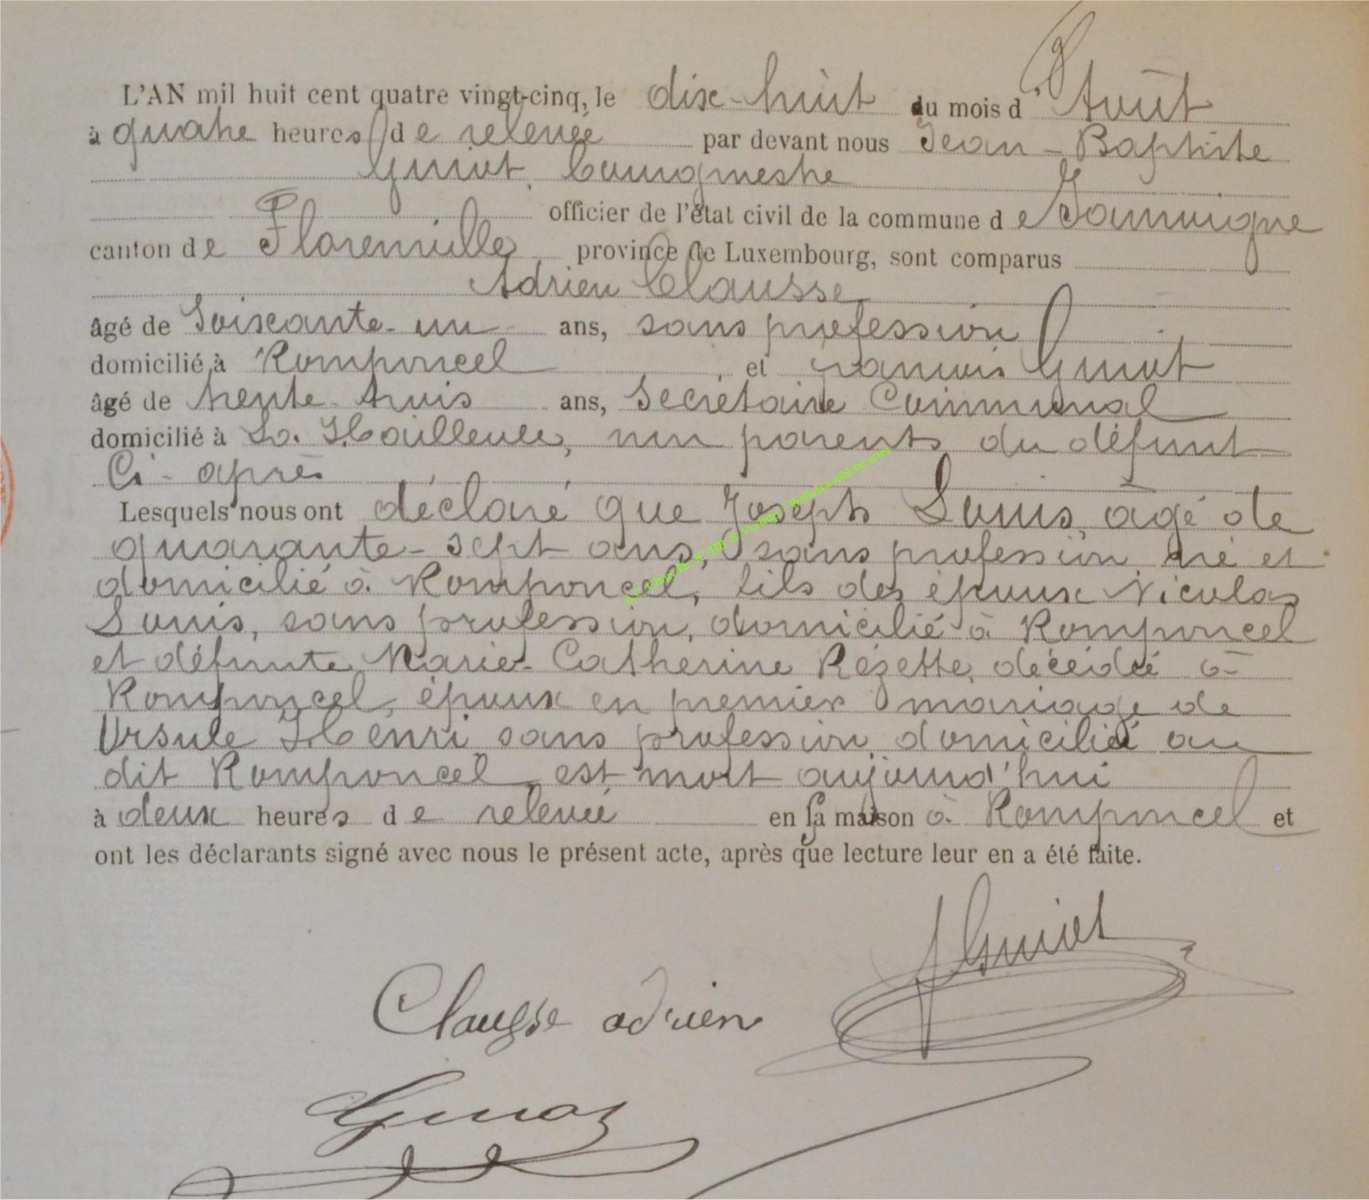 L'AN mil huit cent quatre vingt-cinq, le dix-huit du mois d'Août
à quatre heures de relevée par devant nous Jean-Baptiste
bourgmestre
officier de l'état civil de la commune de
canton de Florenville, province de Luxembourg, sont comparus
Adrien Clausse,
âgé de Soixante-un ans, sans profession
domicilié à Romponcel, et françois
âgé de trente-trois ans, Secrétaire Communal
domicilié à La Hailleule, non parents du défunt
Ci-après
Lesquels nous ont déclaré que Joseph Louis, âgé de
quarante-sept ans, sans profession, né et
domicilié à Romponcel, fils des époux Nicolas
Louis, sans profession, domicilié à Romponcel
et défunte Marie-Catherine Rézette, décédée à
Romponcel, époux en premier mariage de
Ursule Henri sans profession, domiciliée au
dit Romponcel, est mort aujourd'hui
à deux heures de relevée en sa maison à Romponcel et
ont les déclarants signé avec nous le présent acte, après que lecture leur en a été faite.
Clausse adrien